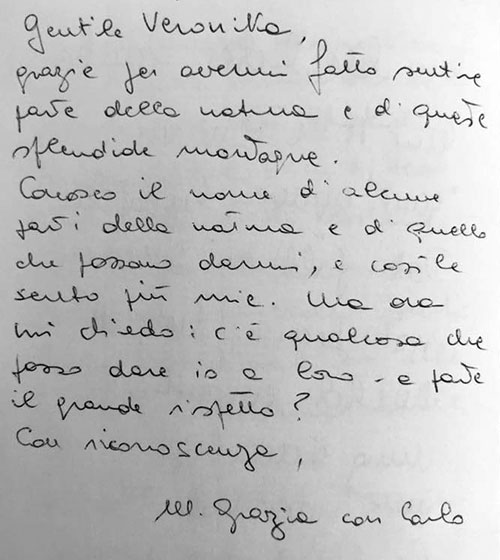 Gentile Veronika,
grazie per avermi fatto sentire
parte della natura e di queste
splendide montagne.
Conosco il nome di alcune
parti della natura e di quello
che possono darmi, e così le
sento più mie. Ma ora
mi chiedo: c'è qualcosa che
posso dare io a loro - a parte
il grande rispetto?
Con riconoscenza,
M. Grazia con Carlo